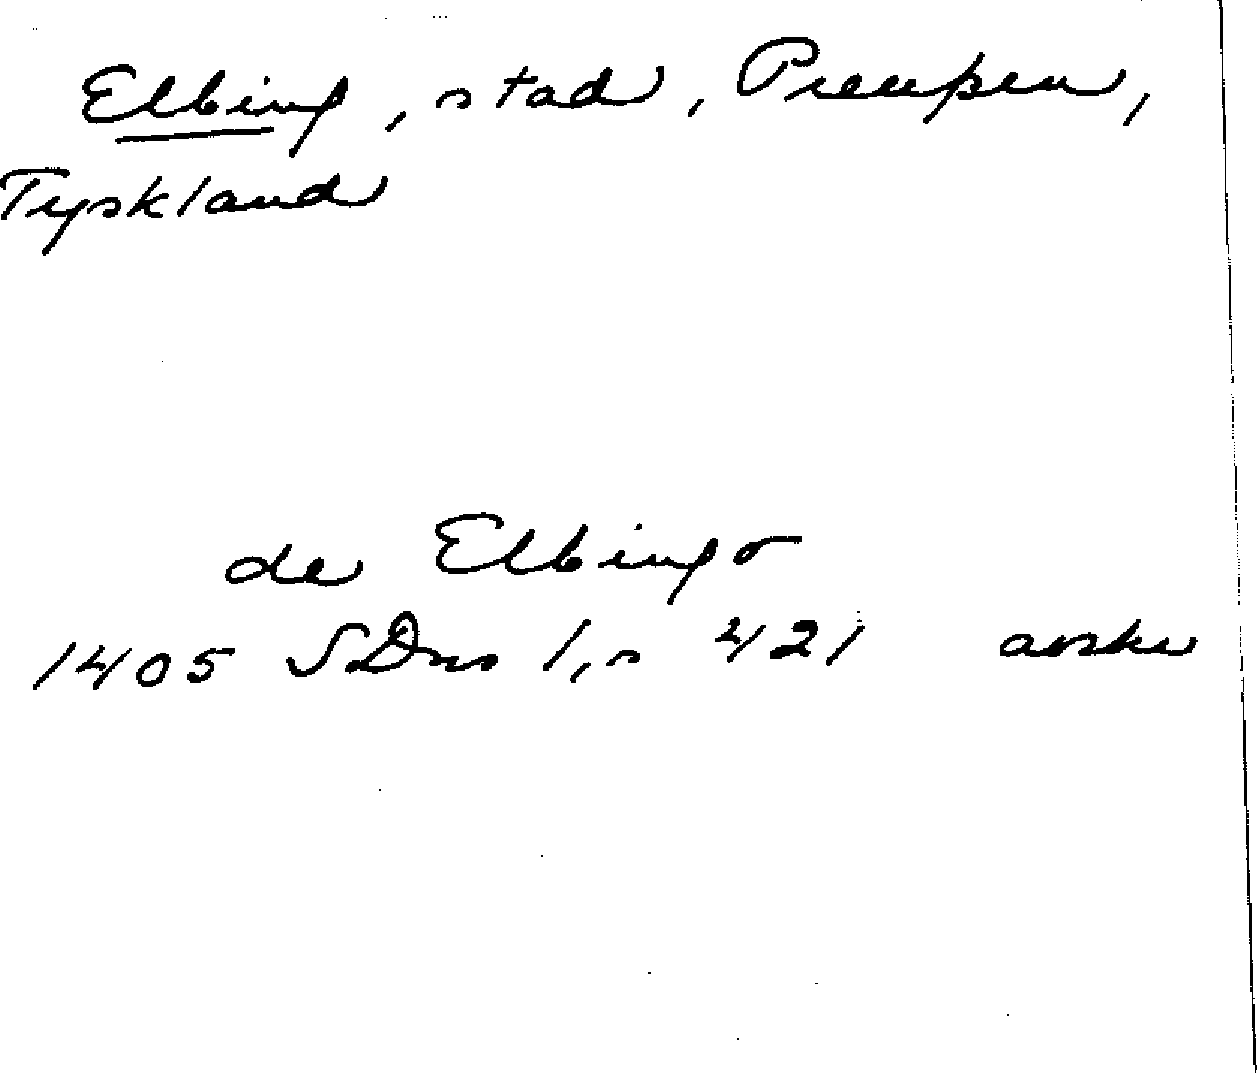 Elbing, stad, Preussen,
Tyskland
de Elbingo
1405 SDns 1, s 421 avskr